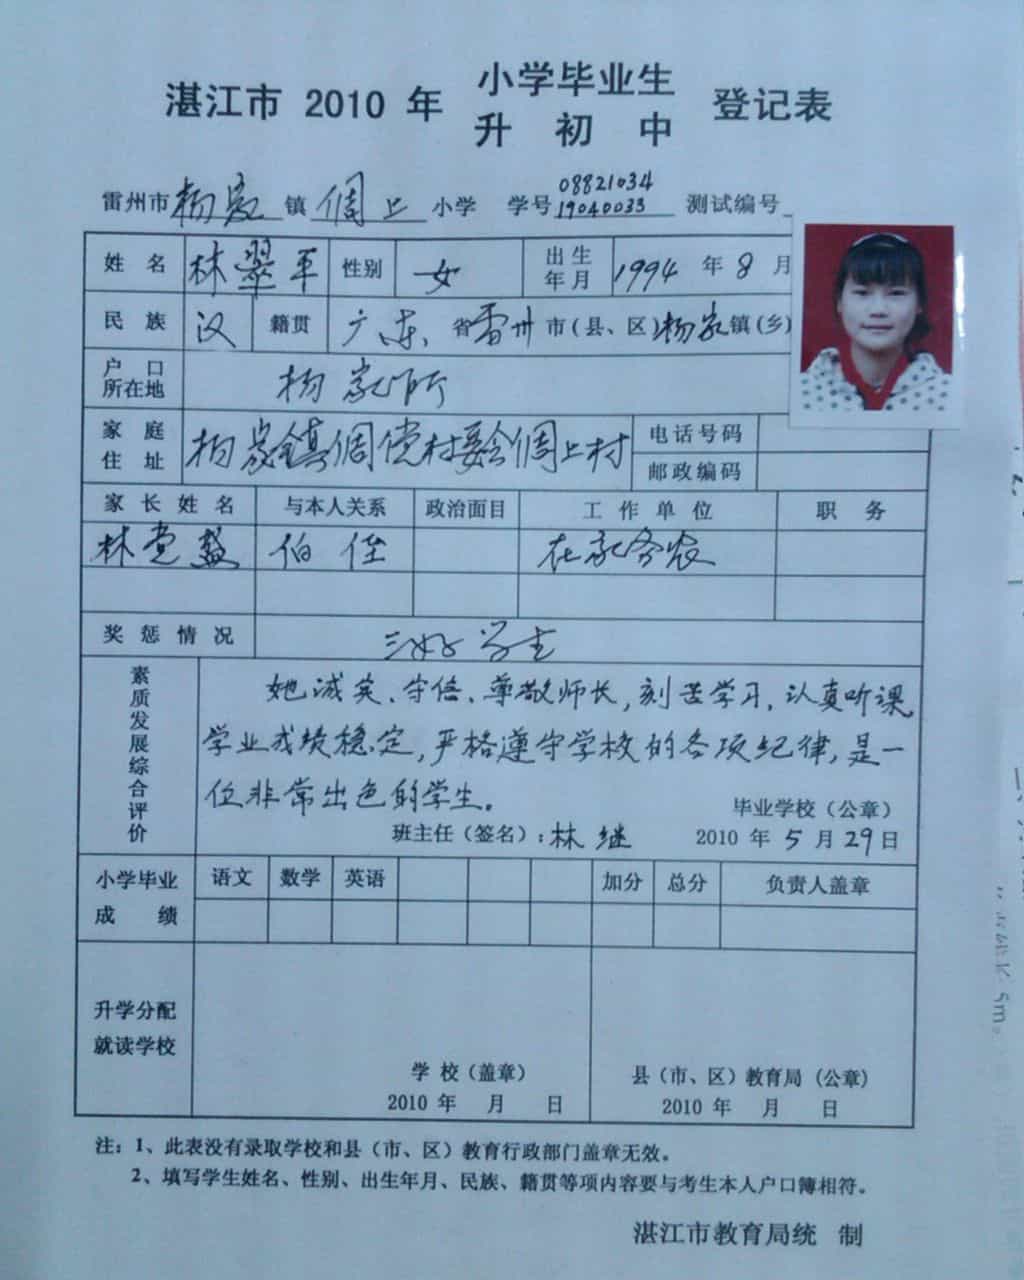 湛江市 2010 年 小学毕业生 登记表
升 初 中
雷州市杨家镇倜上小学 学号 08821034 测试编号
19040033
姓 名 林翠平 性别 女 出生年月 1994 年 8 月
民 族 汉 籍贯 广东 省雷州市(县、区)杨家镇(乡)
户 口
所在地 杨家所
家 庭
住 址 杨家镇倜偿村委会倜上村 电话号码
邮政编码
家 长 姓 名 与本人关系 政治面目 工 作 单 位 职 务
林党盛 伯侄 在家务农
奖 惩 情 况 三好学生
素质发展综合评价
她诚实、守信、尊敬师长,刻苦学习,认真听课
学业成绩稳定,严格遵守学校的各项纪律,是一
位非常出色的学生。
毕业学校(公章)
班主任(签名):林继 2010 年 5 月 29 日
小学毕业 语文 数学 英语 加分 总分 负责人盖章
成 绩
升学分配
就读学校
学 校(盖章) 县(市、区)教育局(公章)
2010 年 月 日 2010 年 月 日
注:1、此表没有录取学校和县(市、区)教育行政部门盖章无效。
2、填写学生姓名、性别、出生年月、民族、籍贯等项内容要与考生本人户口簿相符。
湛江市教育局统 制